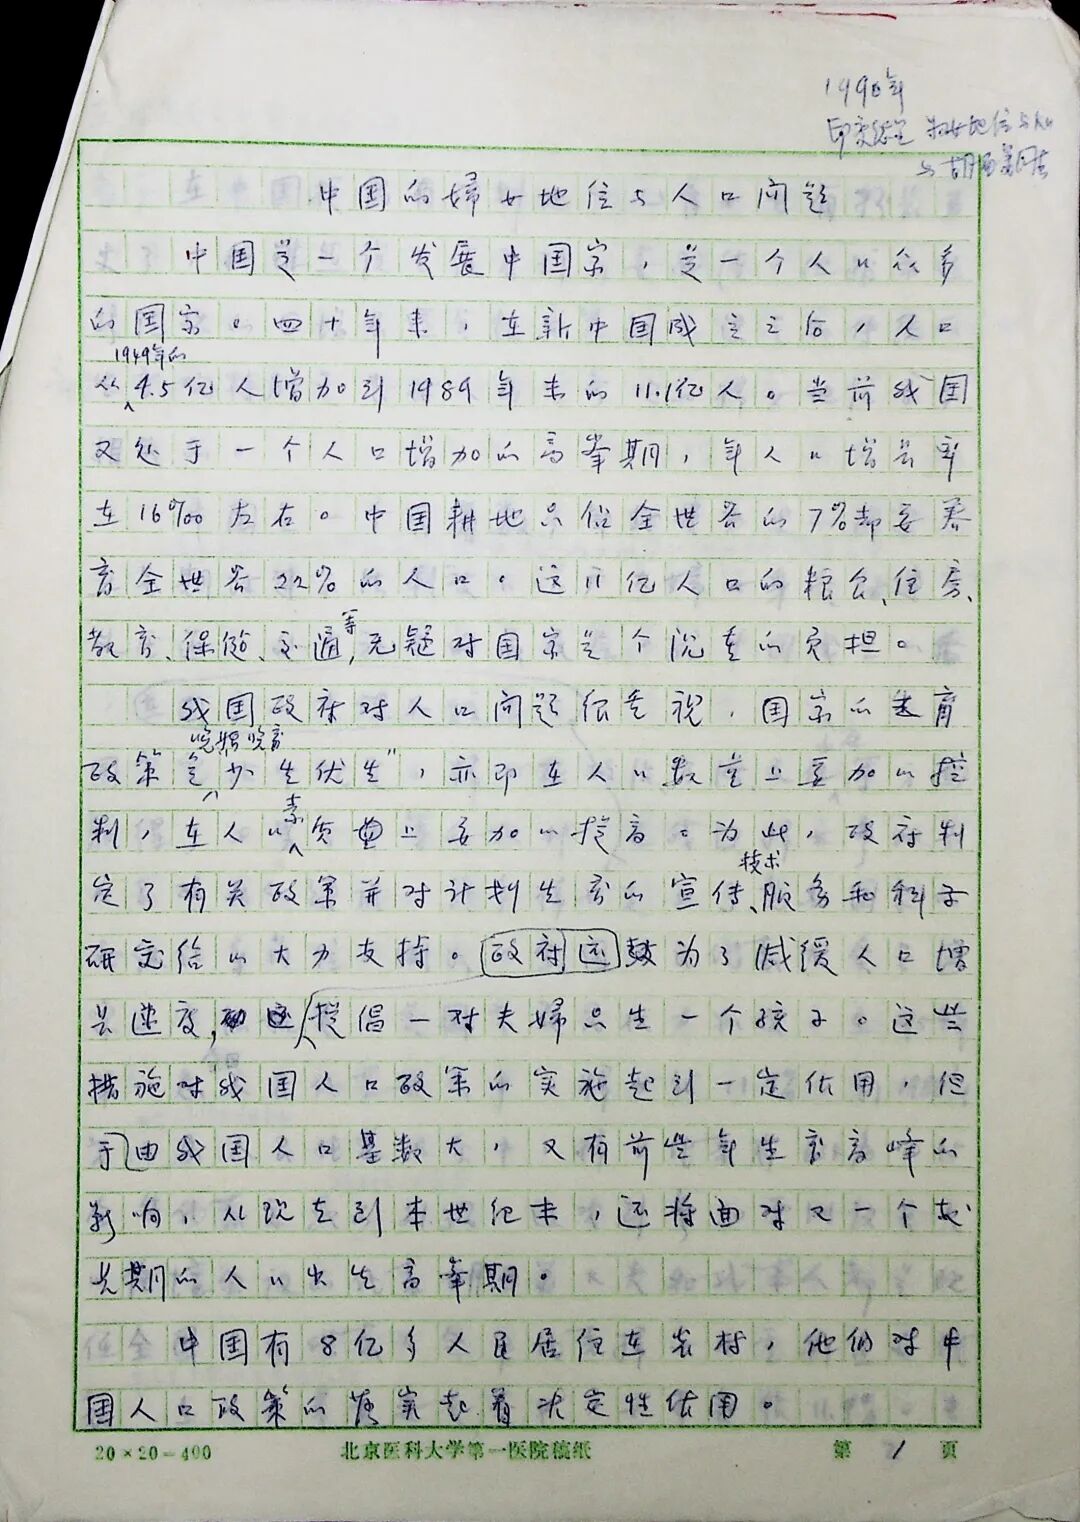 1990年
印度德里 妇女地位与人口
与胡
中国的婦女地位与人口问题
中国是一个发展中国家，是一个人口众多
的国家。四十年来，在新中国成立之后，人口
1949年的
从4.5亿人增加到1989年末的11.1亿人。当前我国
又处于一个人口增加的高峯期，年人口增长率
在16‰左右。中国耕地只佔全世界的7%却要养
育全世界22%的人口。这11亿人口的粮食、住房、
等
教育、保健、交通，无疑对国家是个沉重的负担。
我国政府对人口问题很重视，国家的生育
晚婚晚育
政策是少生优生"，亦即在人口数量上要加以控
素
制，在人口质量上要加以提高。为此，政府制
技术
定了有关政策并对计划生育的宣传、服务和科学
研究给以大力支持。政府还鼓为了减缓人口增
长速度，还提倡一对夫婦只生一个孩子。这些
措施对我国人口政策的实施起到一定作用，但
于由我国人口基数大，又有前些年生育高峰的
影响，从现在到本世纪末，还将面对又一个较
长期的人口出生高峯期。
中国有8亿多人民居住在农村，他们对中
国人口政策的落实起着决定性作用。
20×20=400 北京医科大学第一医院稿纸 第1页